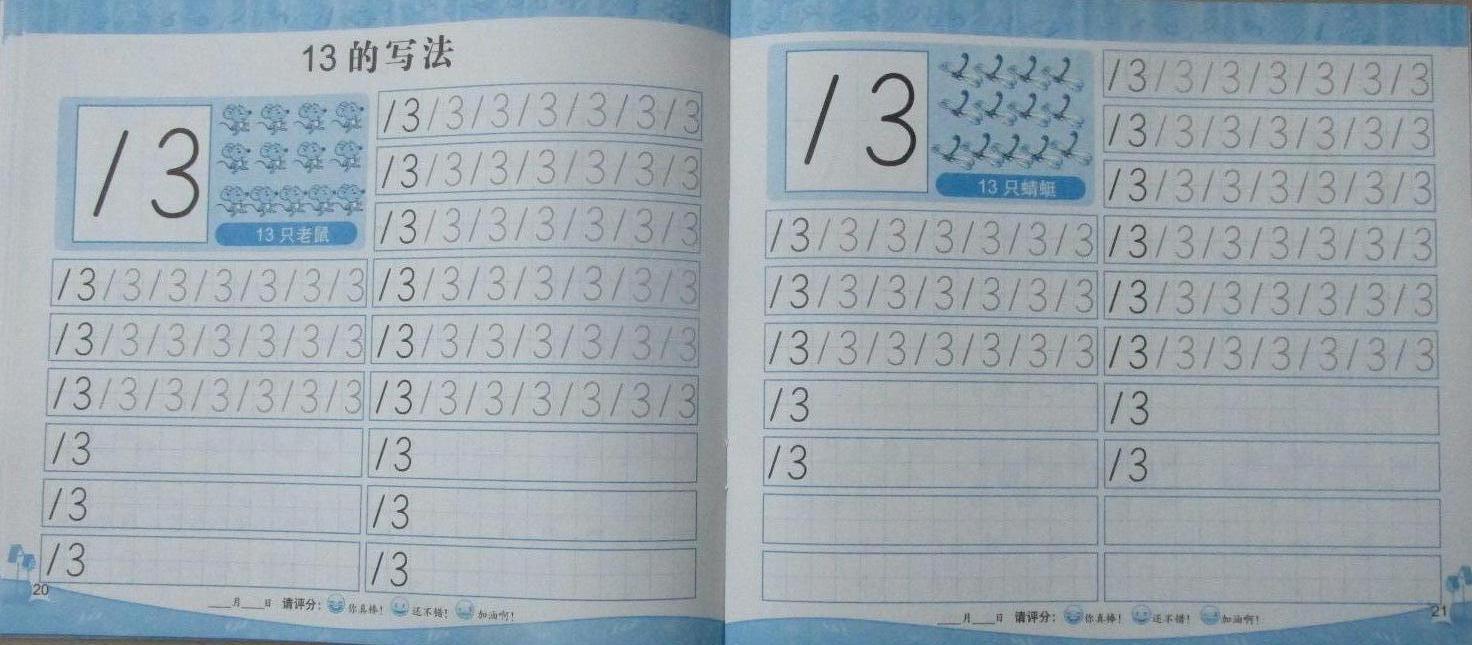 13的写法
13
13只老鼠
13 13 13 13 13 13 13
13 13 13 13 13 13 13
13 13 13 13 13 13 13
13
13
13
13 13 13 13 13 13 13
13 13 13 13 13 13 13
13 13 13 13 13 13 13
13 13 13 13 13 13 13
13 13 13 13 13 13 13
13 13 13 13 13 13 13
13
13
13
20
____月____日 请评分： 你真棒！ 还不错！ 加油啊！
13
13只蜻蜓
13 13 13 13 13 13 13
13 13 13 13 13 13 13
13 13 13 13 13 13 13
13
13
13 13 13 13 13 13 13
13 13 13 13 13 13 13
13 13 13 13 13 13 13
13 13 13 13 13 13 13
13 13 13 13 13 13 13
13 13 13 13 13 13 13
13
13
____月____日 请评分： 你真棒！ 还不错！ 加油啊！
21